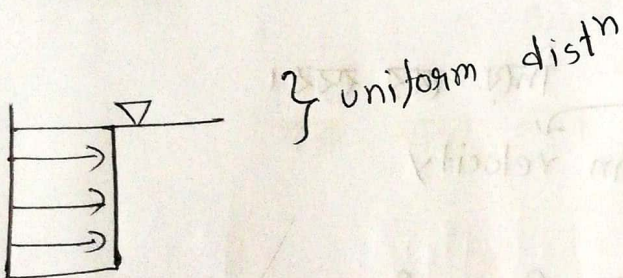 } uniform distⁿ